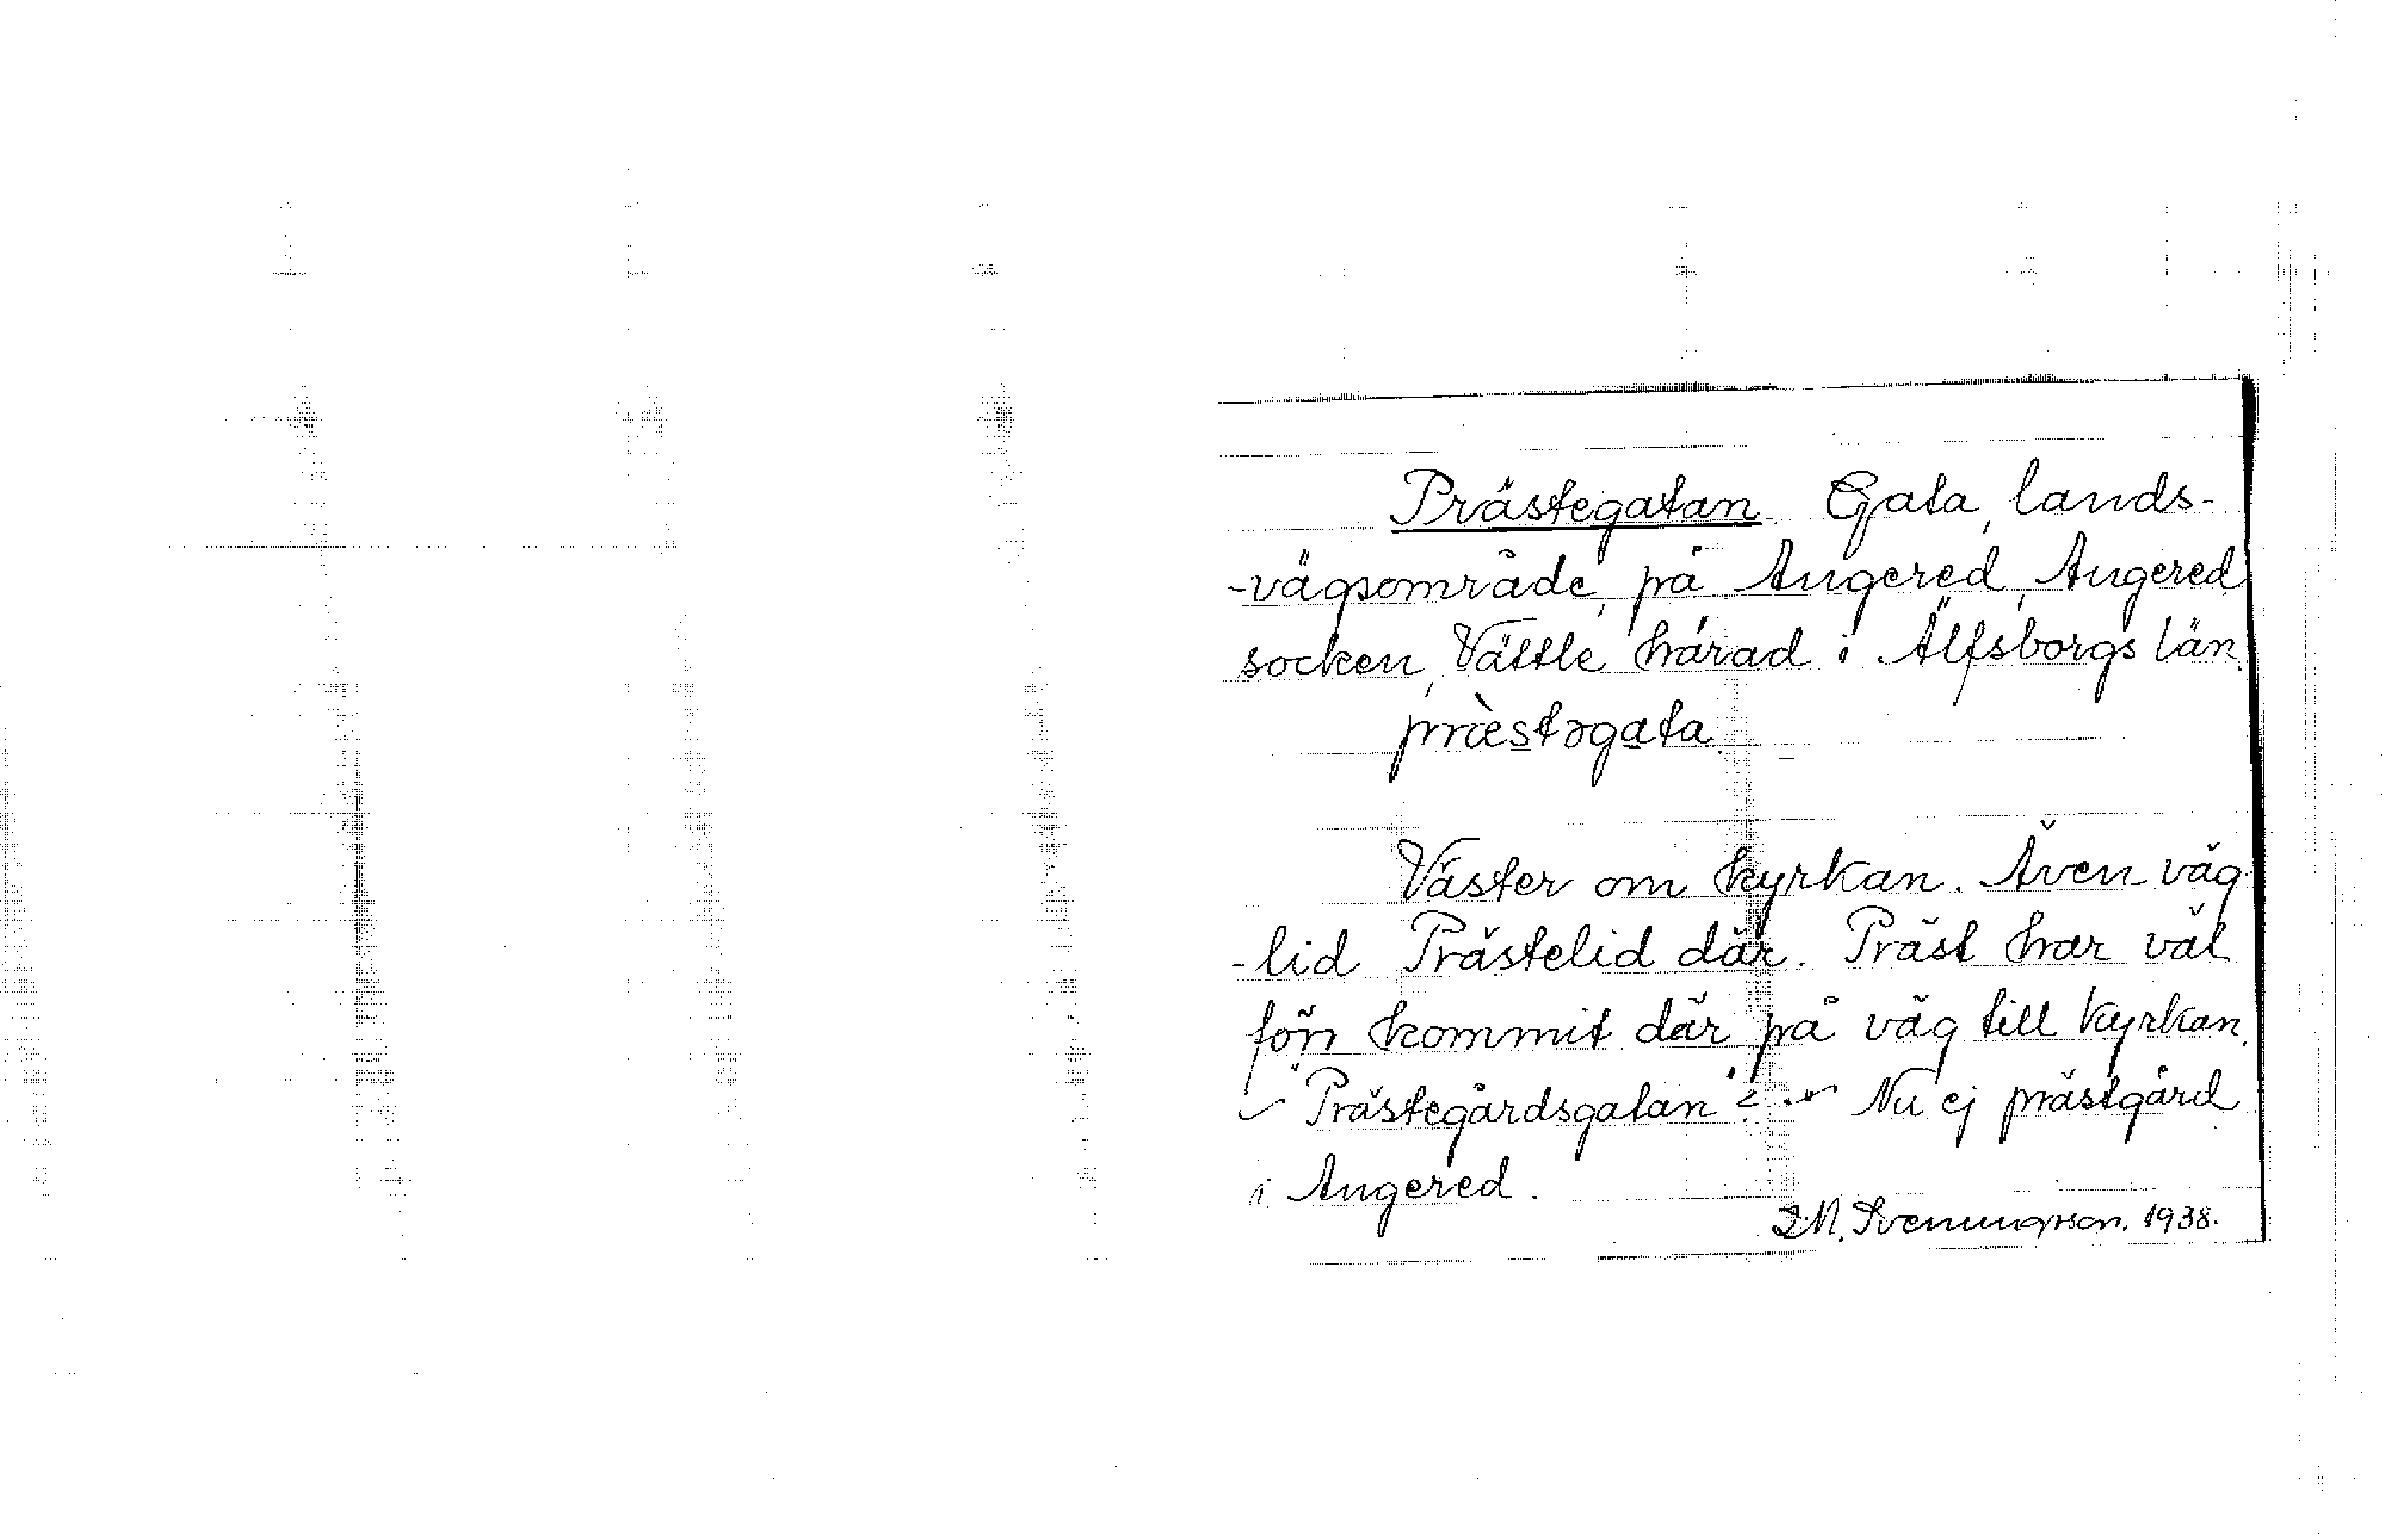 Prästegatan. Gata, lands-
-vägsområde, på Angered, Angered
socken, Vättle härad i Älfsborgs län.
præ̀stəgata.
Väster om kyrkan. Även väg-
-lid Prästelid där. Präst har väl
förr kommit där på väg till kyrkan.
"Prästegårdsgatan"? Nu ej prästgård
i Angered.
Svenungsson. 1938.